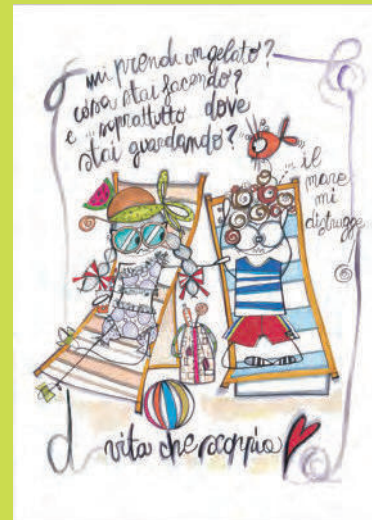 mi prendi un gelato?
cosa stai facendo?
e ... soprattutto dove
stai guardando?
... il
mare
mi
distrugge
vita che scoppia